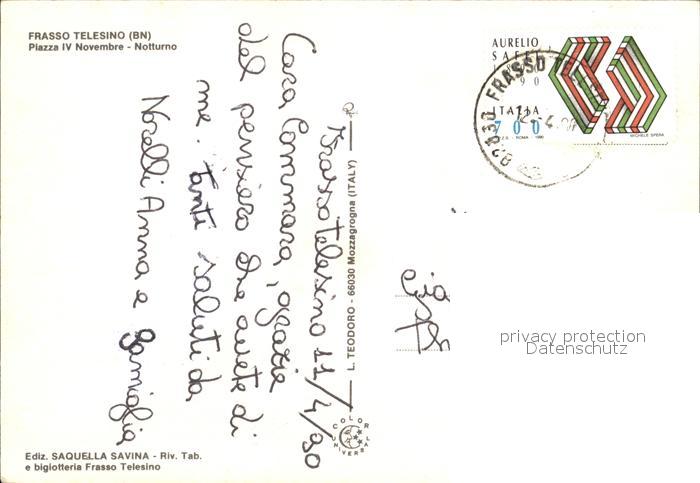 FRASSO TELESINO (BN)
Piazza IV Novembre - Notturno
Frasso Telesino 11/4/90
Cara Commara, grazie
del pensiero che avete di
me. Tanti saluti da
Norelli Anna e famiglia
L. TEODORO - 66030 Mozzagrogna (ITALY)
COLOR
UNIVERSAL
Ediz. SAQUELLA SAVINA - Riv. Tab.
e bigiotteria Frasso Telesino
AURELIO
SAFFI
1890
1990
ITALIA
700
I.P.Z.S. - ROMA - 1990
MICHELE SPERA
82030 FRASSO TELESINO
12-4-90
privacy protection
Datenschutz